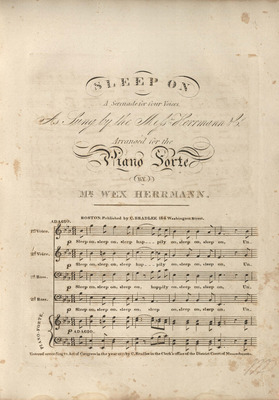 SLEEP ON
A Serenade for four Voices
As Sung by the Messrs Herrmann & Co.
Arranged for the
Piano Forte
BY
Mr. WEX HERRMANN.
BOSTON. Published by C. BRADLEE 184 Washington Street.
ADAGIO.
1st Voice.
p Sleep on, sleep on, sleep hap - - pily on, sleep on, sleep on, Un-
2d Voice.
p Sleep on, sleep on, sleep hap - - pily on, sleep on, sleep on, Un-
1st Bass.
p Sleep on, sleep on, sleep on, happily on, sleep on, sleep on, Un-
2d Bass.
p Sleep on, sleep on, sleep on, sleep on, sleep on, sleep on, Un-
PIANO-FORTE.
p ADAGIO.
Entered according to Act of Congress in the year by C. Bradlee in the Clerk's office of the District Court of Massachusetts.